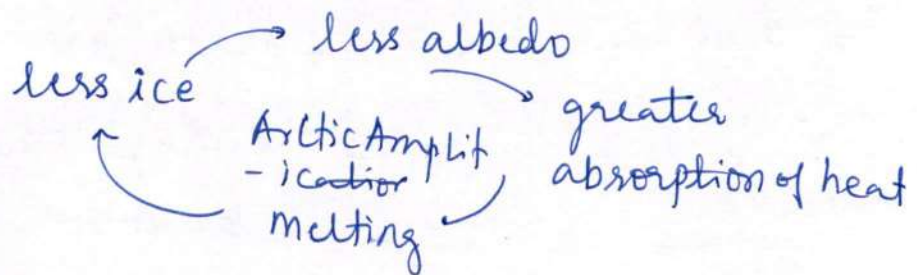 less albedo
less ice
greater
absorption of heat
Arctic Amplif
-ication
Melting